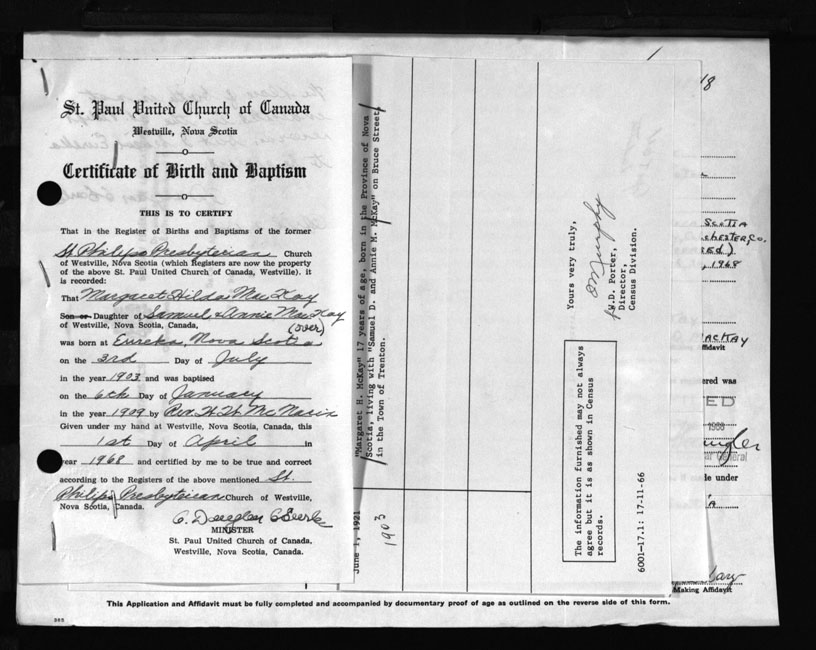 St. Paul United Church of Canada
Westville, Nova Scotia
Certificate of Birth and Baptism
THIS IS TO CERTIFY
That in the Register of Births and Baptisms of the former
St. Philips Presbyterian Church
of Westville, Nova Scotia (which Registers are now the property
of the above St. Paul United Church of Canada, Westville). it
is recorded:
That Margaret Hilda MacKay
Son or Daughter of Samuel & Annie MacKay
of Westville, Nova Scotia, Canada, (over)
was born at Eureka, Nova Scotia
on the 3rd Day of July
in the year 1903 and was baptised
on the 6th Day of January
in the year 1909 by Rev. H. H.
Given under my hand at Westville, Nova Scotia, this
1st Day of April in
year 1968 and certified by me to be true and correct
according to the Registers of the above mentioned St.
Philips Presbyterian Church of Westville,
Nova Scotia, Canada.
C. Douglas
MINISTER
St. Paul United Church of Canada,
Westville, Nova Scotia, Canada.
June 1, 1921
1903
"Margaret H. McKay" 17 years of age, born in the Province of Nova
Scotia, living with "Samuel D. and Annie M. McKay" on Bruce Street,
in the Town of Trenton.
Yours very truly,
Murphy
W.D. Porter,
Director,
Census Division.
The information furnished may not always
agree but it is as shown in Census
records.
6001-17.1: 17-11-66
18
SCOTIA
CHESTER, Co.
, 1968
MACKAY
ffidavit
ered was
ED
1968
General
de under
Making Affidavit
This Application and Affidavit must be fully completed and accompanied by documentary proof of age as outlined on the reverse side of this form.